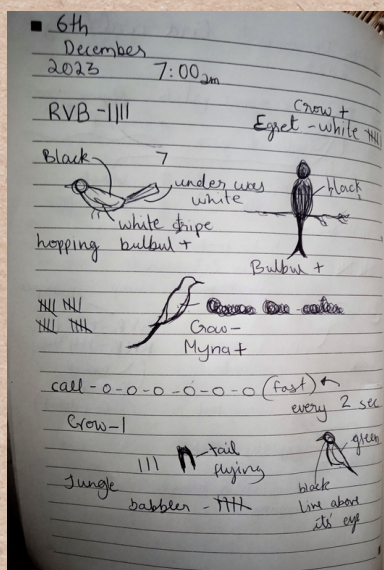 6th
December
2023 7:00am
RVB - ||||
Crow +
Egret - white 卌
Black
7
under was
white
black
white stripe
hopping bulbul +
Bulbul +
卌 卌
卌 卌
Crow -
Myna +
call - o - o - o - o - o - o (fast)
every 2 sec
Crow - |
||| tail
flying
green
Jungle
babbler - 卌
black
line above
its' eye